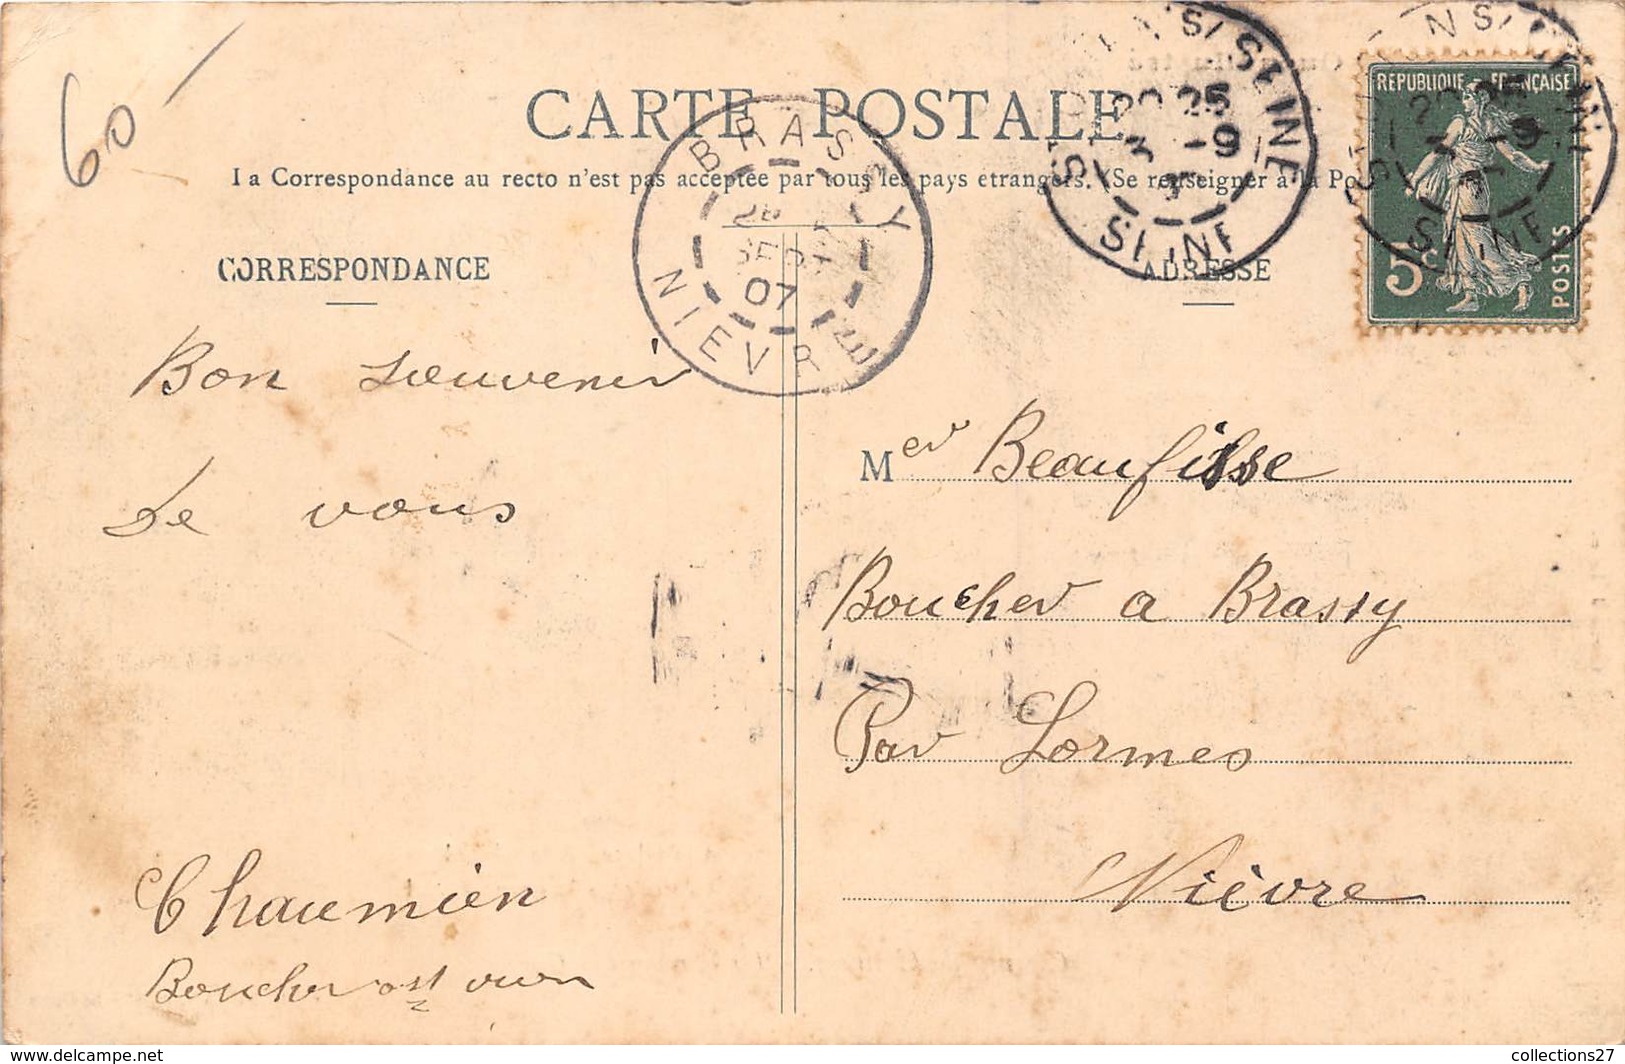 60 -
CARTE POSTALE
La Correspondance au recto n'est pas acceptée par tous les pays étrangers. (Se renseigner à la Po
CORRESPONDANCE
ADRESSE
REPUBLIQUE FRANÇAISE
5c
POSTES
BRASSY
28
SEPT
07
NIEVRE
S/SEINE
25
3 -9
SEINE
Bon souvenir
de vous
Chaumien
Boucher
Mer Beaufisse
Boucher a Brassy
Par Lormes
Nièvre
www.delcampe.net
collections27